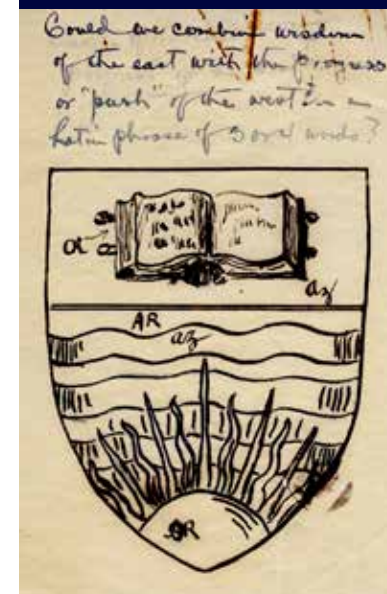 Could we combine wisdom
of the east with the progress
or "push" of the west in a
Latin phrase of 3 or 4 words?
or
az
AR
az
OR